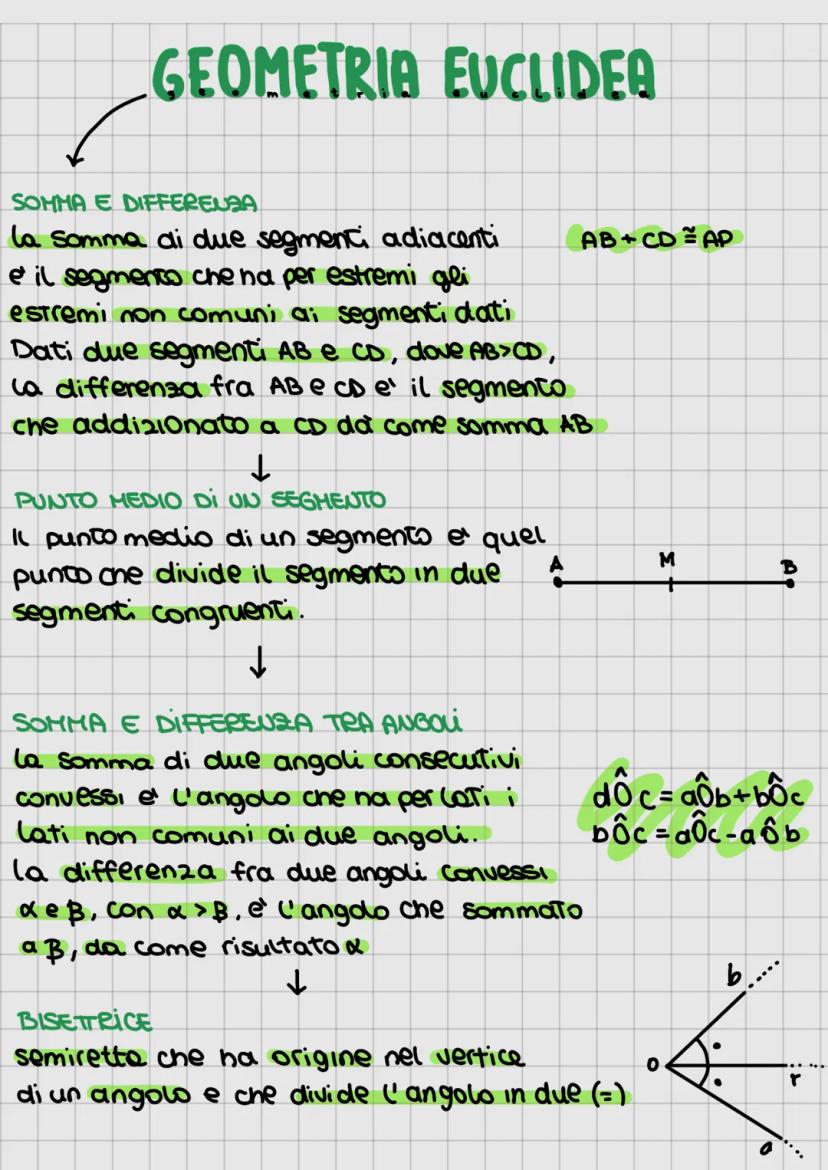 GEOMETRIA EUCLIDEA
geometria euclidea
SOMMA E DIFFERENZA
la somma di due segmenti adiacenti
e' il segmento che ha per estremi gli
estremi non comuni ai segmenti dati
AB + CD ≅ AD
Dati due segmenti AB e CD, dove AB>CD,
la differenza fra AB e CD e' il segmento
che addizionato a CD dà come somma AB
↓
PUNTO MEDIO Di UN SEGMENTO
Il punto medio di un segmento e' quel
punto che divide il segmento in due
segmenti congruenti.
A M B
↓
SOMMA E DiFFERENZA TRA ANGOLi
la somma di due angoli consecutivi
convessi e' l'angolo che ha per lati i
lati non comuni ai due angoli.
dÔc = aÔb + bÔc
bÔc = aÔc - aÔb
la differenza fra due angoli convessi
α e β, con α > β, e' l'angolo che sommato
a β, da come risultato α
↓
BISETTRICE
semiretta che ha origine nel vertice
di un angolo e che divide l'angolo in due (=)
b
O
r
a